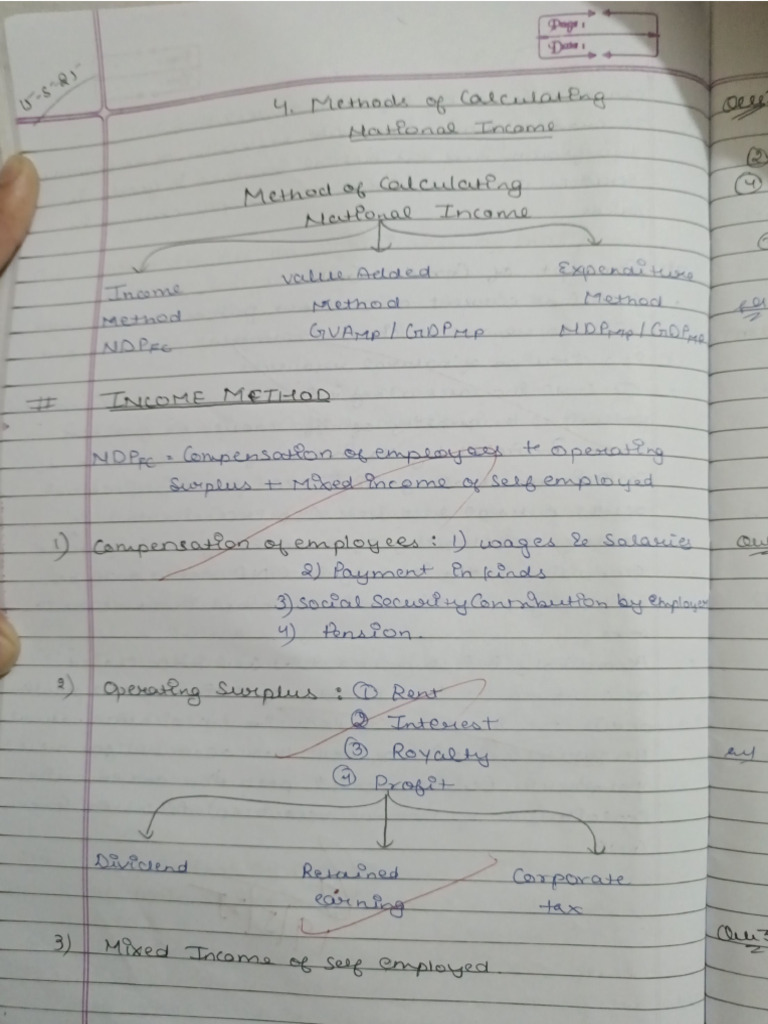 Page:
Date:
4. Methods of Calculating
National Income
Method of Calculating
National Income
Income
Method
NDPFC
Value Added
Method
GVAMP / GDPMP
Expenditure
Method
NDPMP / GDPMP
# INCOME METHOD
NDPFC = Compensation of employees + Operating
Surplus + Mixed income of self employed
1) Compensation of employees : 1) wages & Salaries
2) Payment in kinds
3) Social Security Contribution by employer
4) Pension.
2) Operating Surplus : ① Rent
② Interest
③ Royalty
④ Profit
Dividend
Retained
earning
Corporate
tax
3) Mixed Income of self employed.